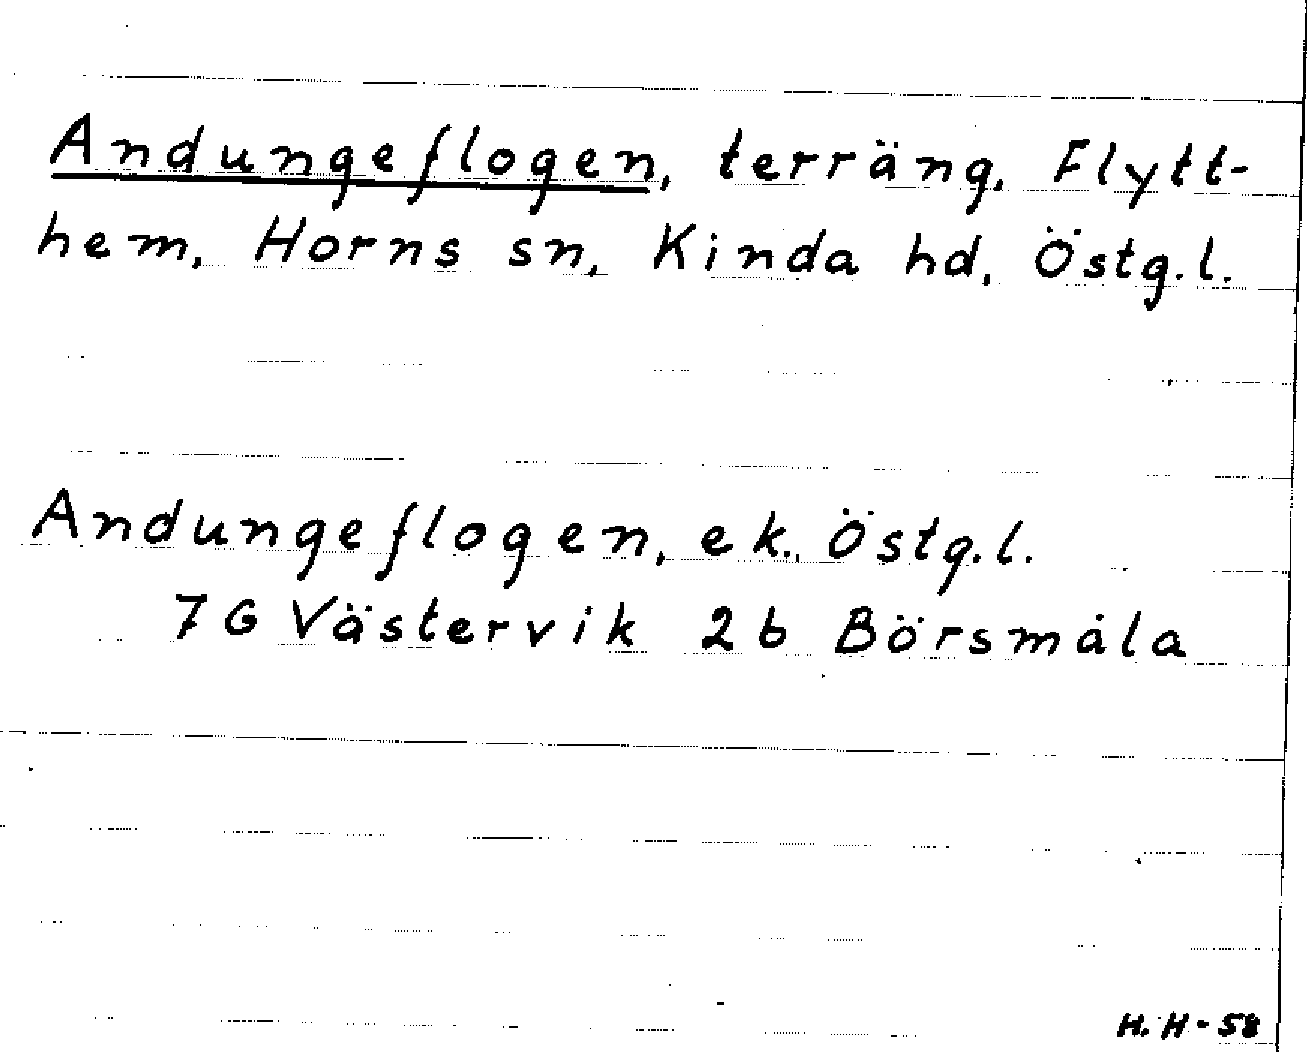 Andungeflogen, terräng, Flytt-
hem, Horns sn, Kinda hd, Östg.l.
Andungeflogen, ek., Östg.l.
7G Västervik 2b Börsmåla
H.H-58